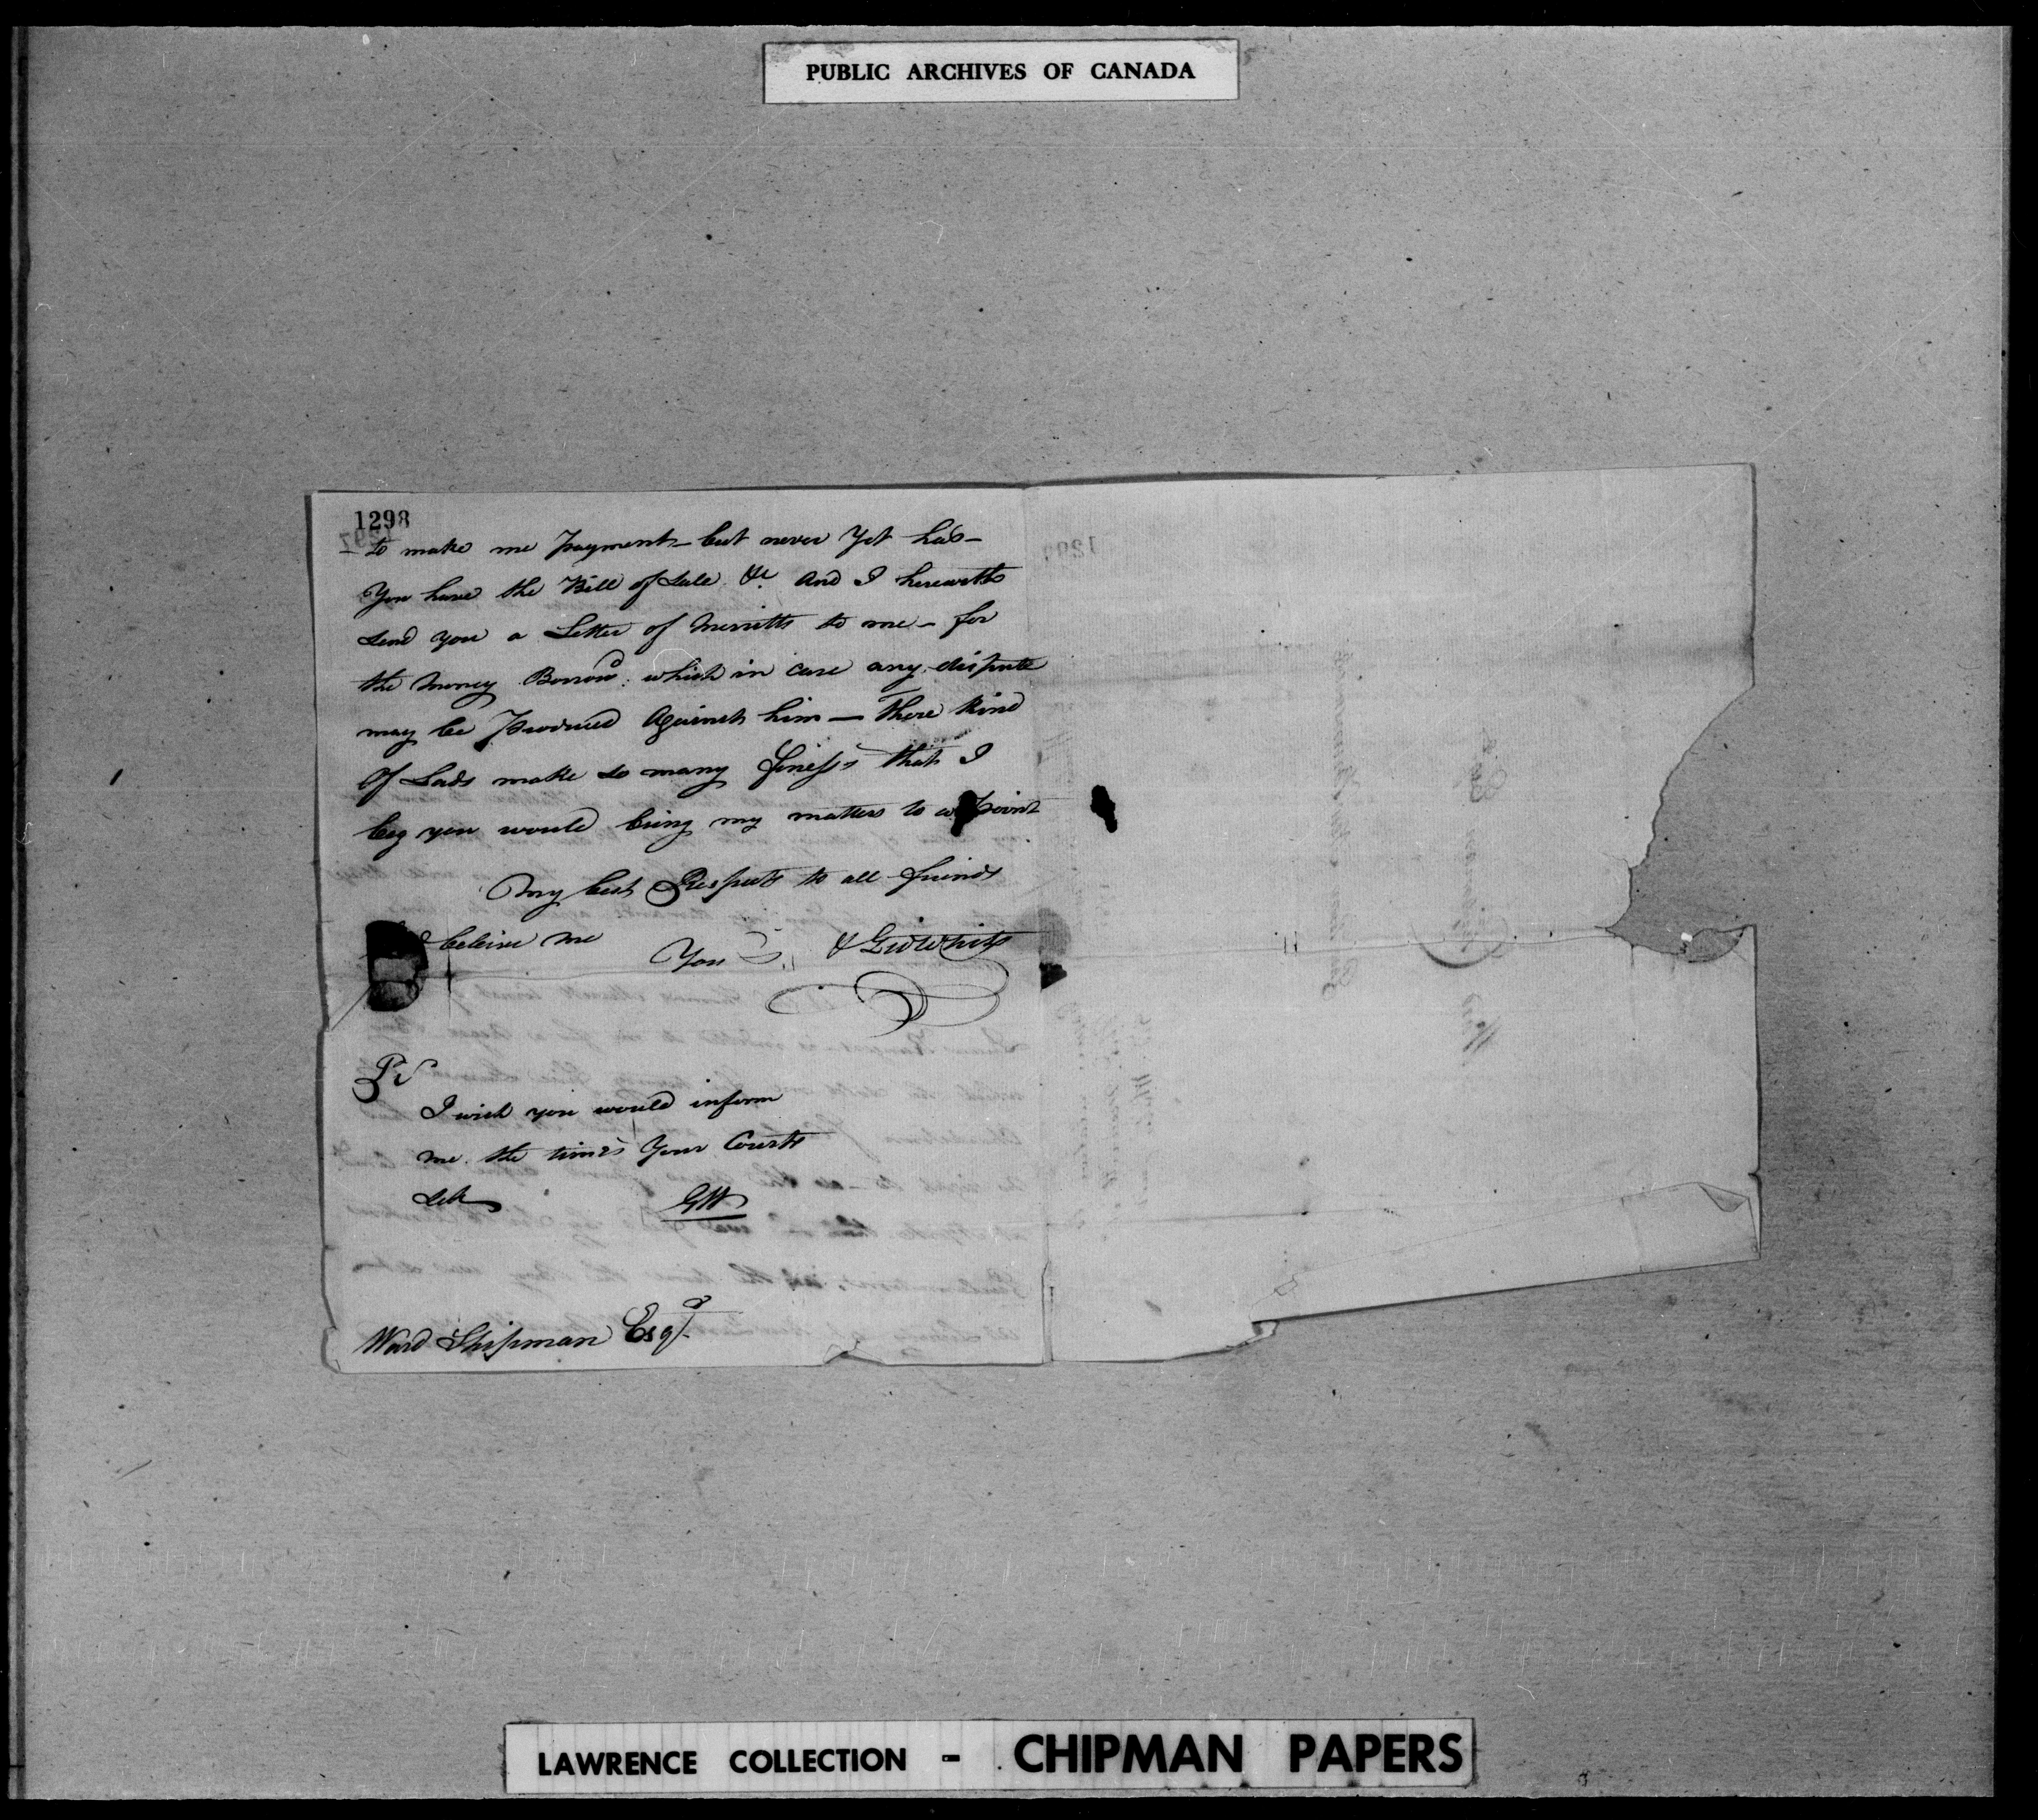 PUBLIC ARCHIVES OF CANADA
1298
to make me Payment - but never Yet has -
You have the Bill of Sale &c and I herewith
Send you a Letter of Merritts to me - for
the Money Borrowd which in case any dispute
may be Produced Against him — These kind
Of Lads make so many finess's that I
beg you would bring my matters to a Point
My best Respects to all friends
beleive me
Your's &
Gid White
PS
I wish you would inform
me the times Your Courts
Set
GW
Ward Chipman Esqr
LAWRENCE COLLECTION - CHIPMAN PAPERS